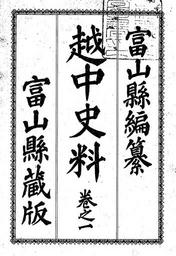 富山縣編纂
越中史料
卷之一
富山縣蔵版